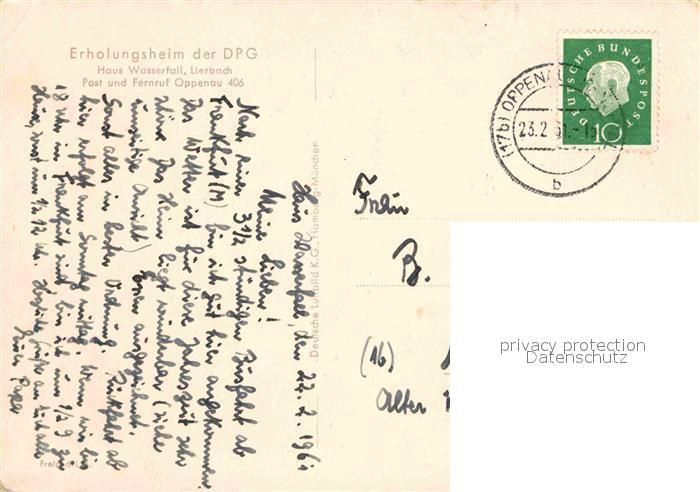 Erholungsheim der DPG
Haus Wasserfall, Lierbach
Post und Fernruf Oppenau 406
Haus Wasserfall, den 22. 2. 1961
Meine Lieben!
Nach einer 3 1/2 stündigen Busfahrt ab
Frankfurt (M) bin ich gut hier angekommen.
Das Wetter ist für diese Jahreszeit sehr
schön. Das Heim liegt wunderbar (siehe
umseitige Ansicht). Essen ausgezeichnet.
Sonst alles in bester Ordnung. Rückfahrt ab
hier erfolgt am Sonntag mittag. Wenn wir bis
18 Uhr in Frankfurt sind bin ich um 1/2 9 zu
Hause, sonst um 1/2 12 Uhr. Herzliche Grüße an Euch alle
Euer Papa
Deutsche Luftbild K.G., Hamburg-München
DEUTSCHE BUNDESPOST
10
(17b) OPPENAU
23.2.61.-
b
Frau
B.
(16)
Alter
privacy protection
Datenschutz